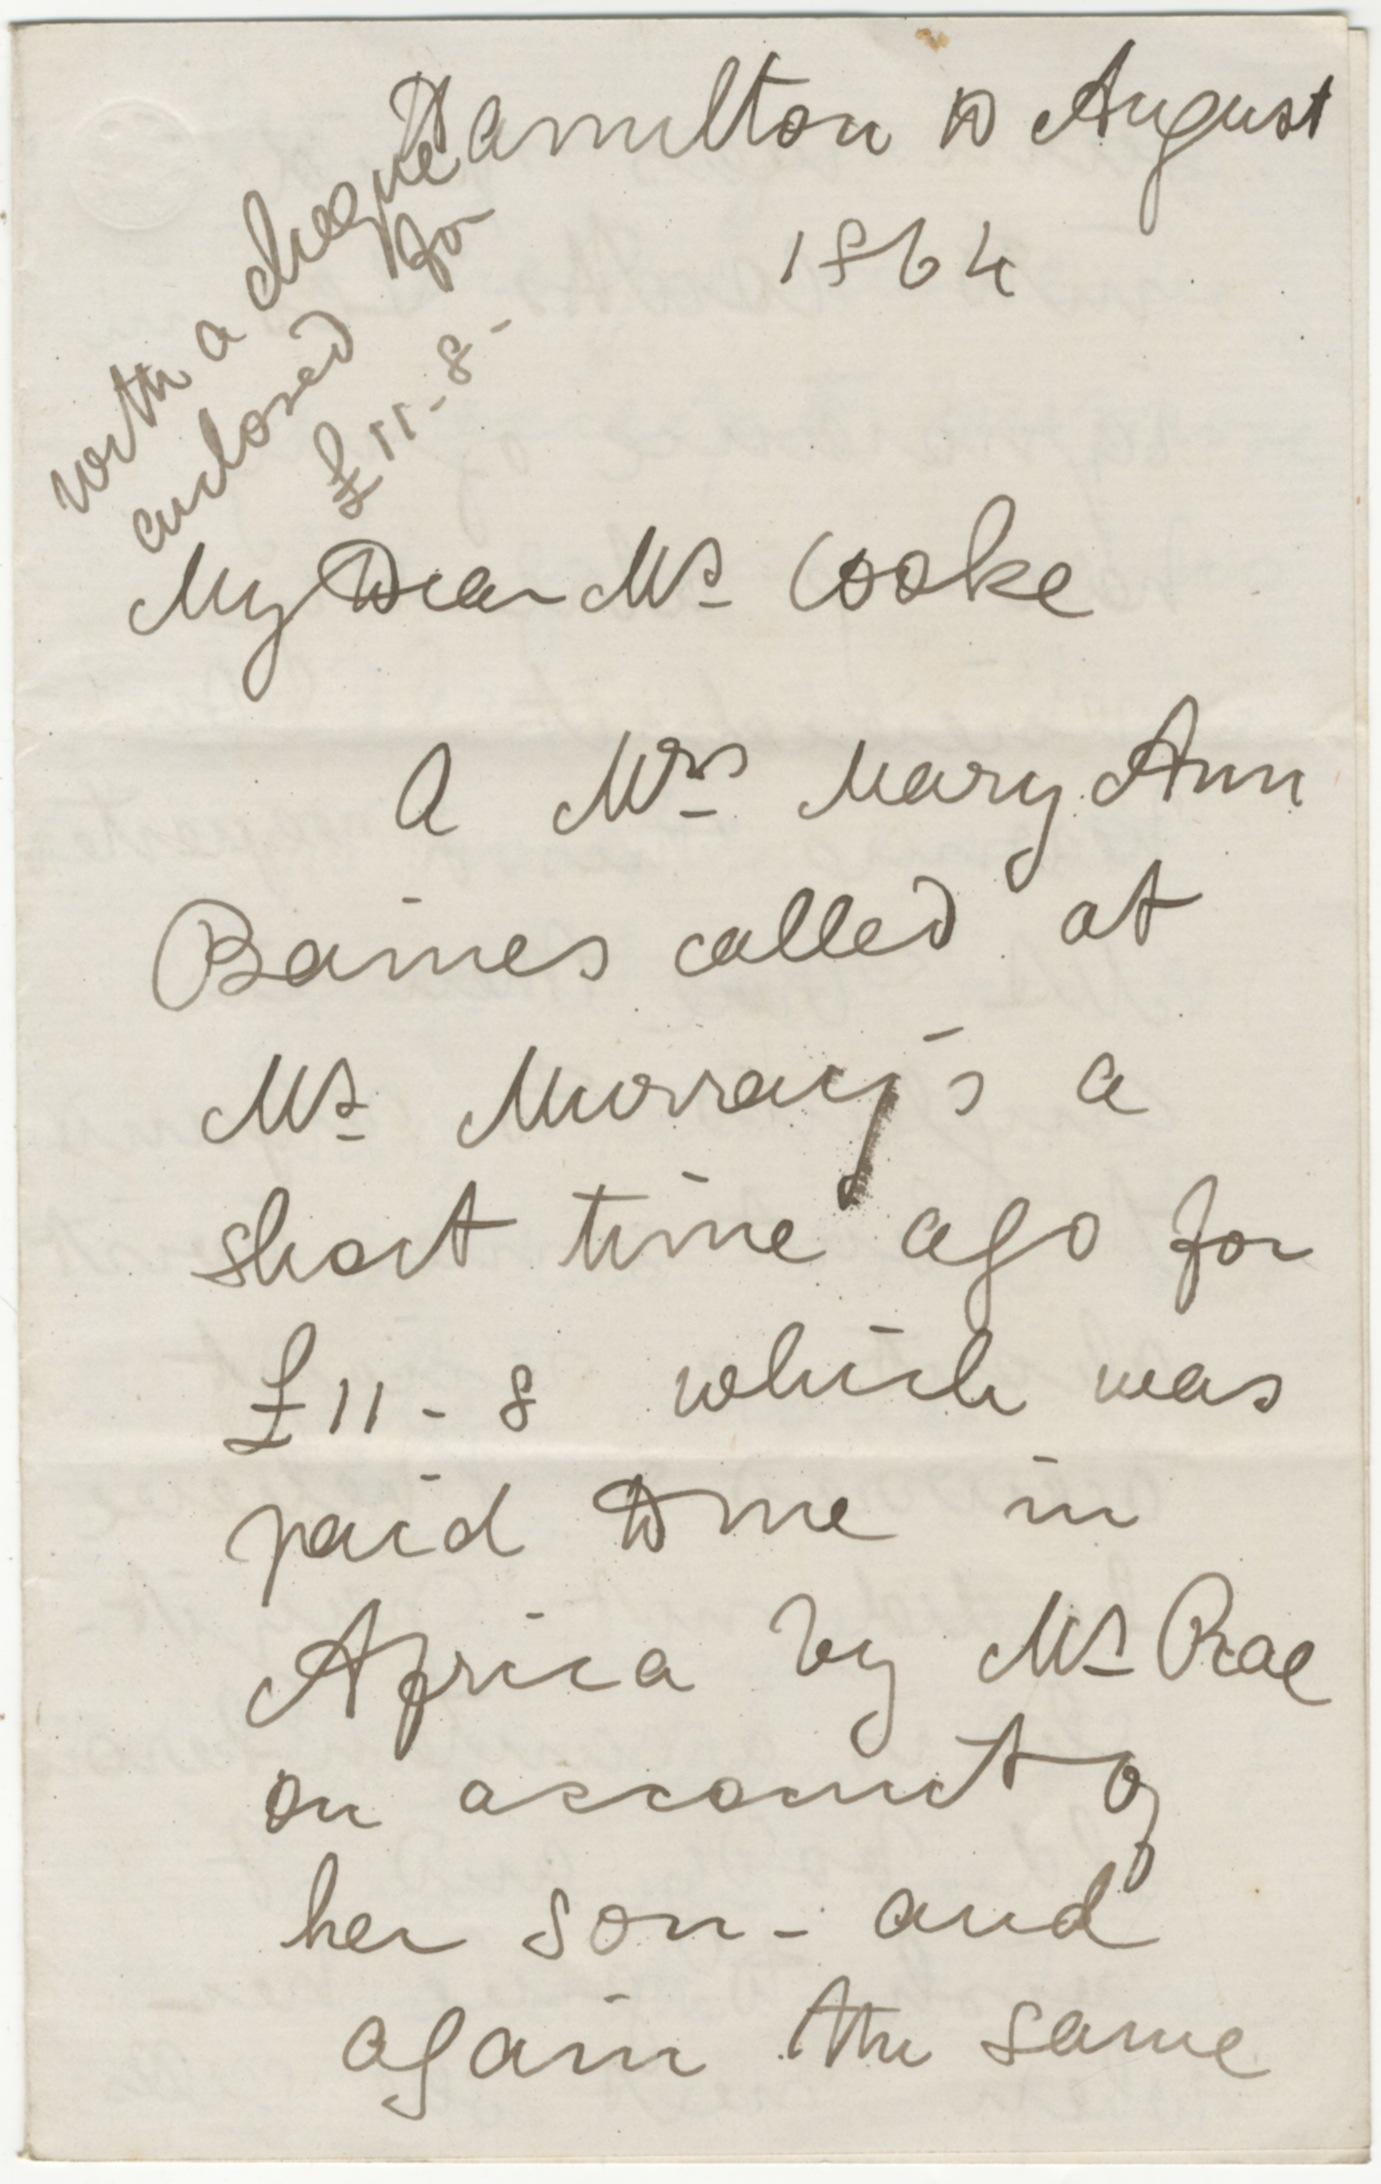 Hamilton 10 August
1864
with a cheque
enclosed for
£11-8-
My Dear Mr Cooke
A Mrs Mary Ann
Baines called at
Mr Murray's a
short time ago for
£11-8 which was
paid to me in
Africa by Mr Rae
on account of
her son - and
again the same